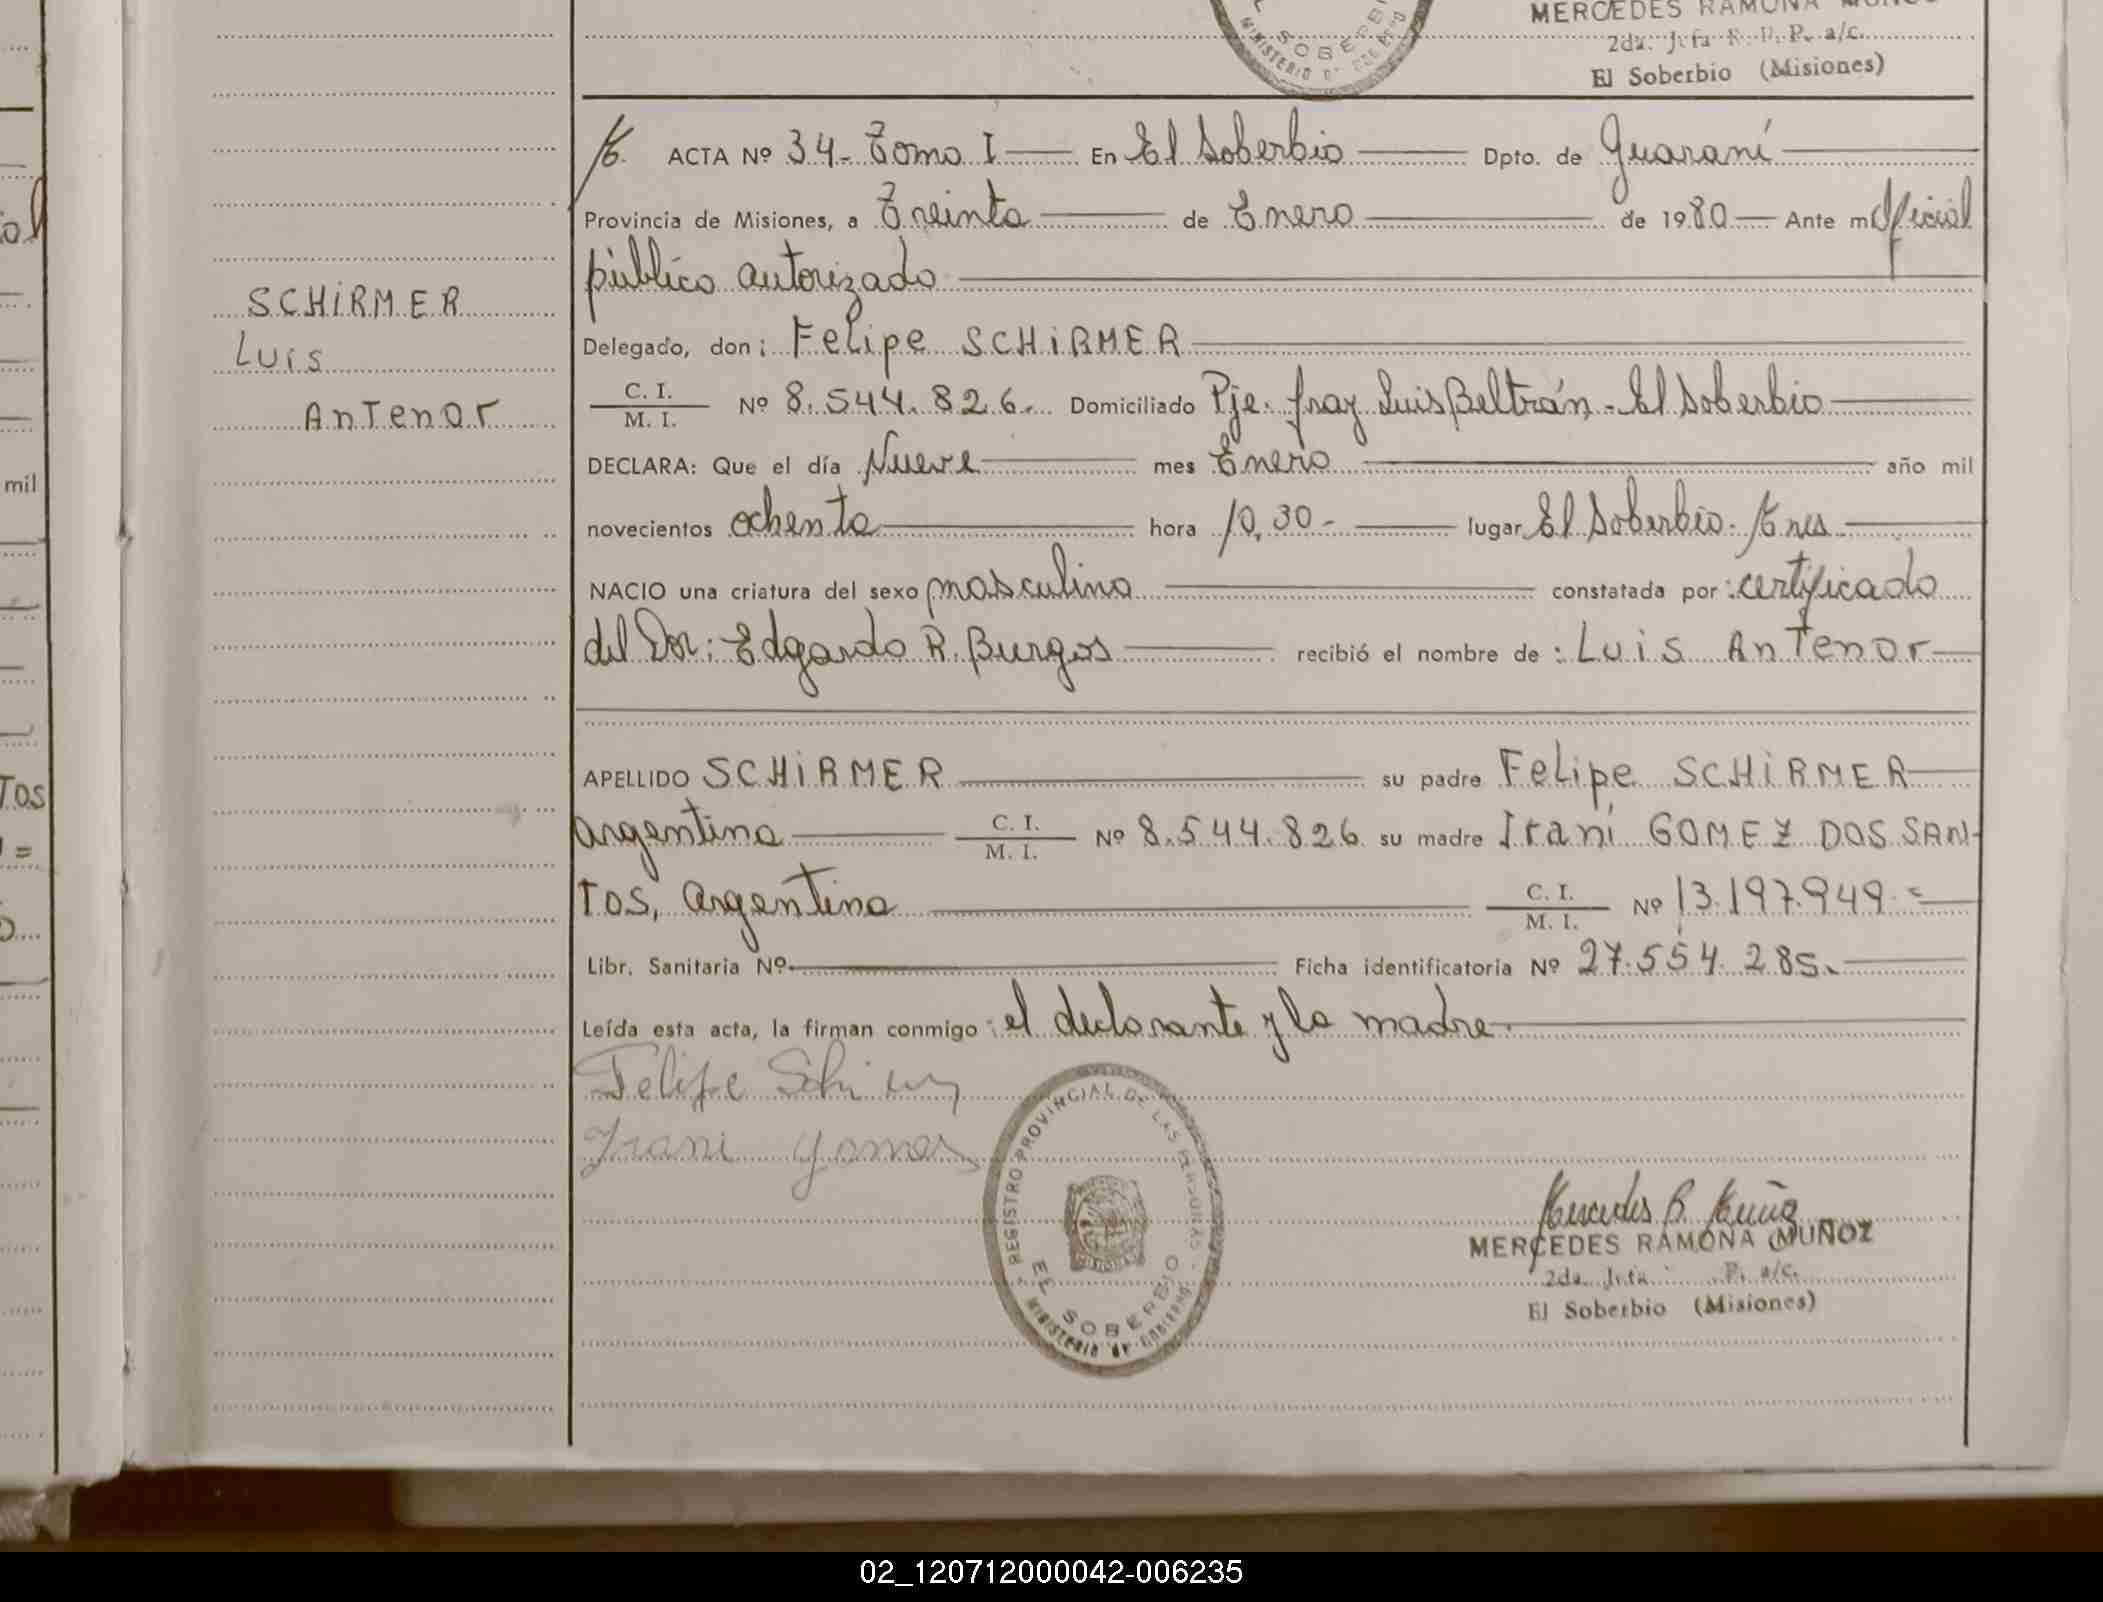 MERCEDES RAMONA MUÑOZ
2da. Jefa R. P. P. a/c.
SOBERBIO
El Soberbio (Misiones)
ACTA Nº 34- Tomo I En El Soberbio Dpto. de Guaraní
Provincia de Misiones, a Treinta de Enero de 1980 Ante mí Oficial
público autorizado
SCHiRMER
Luis
AnTenor
Delegado, don: Felipe SCHiRMER
C. I.
M. I.
Nº 8.544.826. Domiciliado Pje. fray Luis Beltrán - El Soberbio
DECLARA: Que el día Nueve mes Enero año mil
novecientos ochenta hora 10,30- lugar El Soberbio.
NACIO una criatura del sexo masculino constatada por: certificado
del Dor: Edgardo R. Burgos recibió el nombre de: Luis AnTenor
APELLIDO SCHiRMER su padre Felipe SCHiRMER
argentino C. I.
M. I.
Nº 8.544.826 su madre Irani GOMEZ DOS SAN-
TOS, argentina C. I.
M. I.
Nº 13.197.949.=
Libr. Sanitaria Nº Ficha identificatoria Nº 27.554.285.
Leída esta acta, la firman conmigo: el declarante y la madre.
Felipe
Irani Gomes
REGISTRO PROVINCIAL DE LAS PERSONAS
EL SOBERBIO
MINISTERIO DE GOBIERNO
Mercedes R. Muñoz
MERCEDES RAMONA MUÑOZ
2da. Jefa P. a/c.
El Soberbio (Misiones)
mil
TOS
02_120712000042-006235